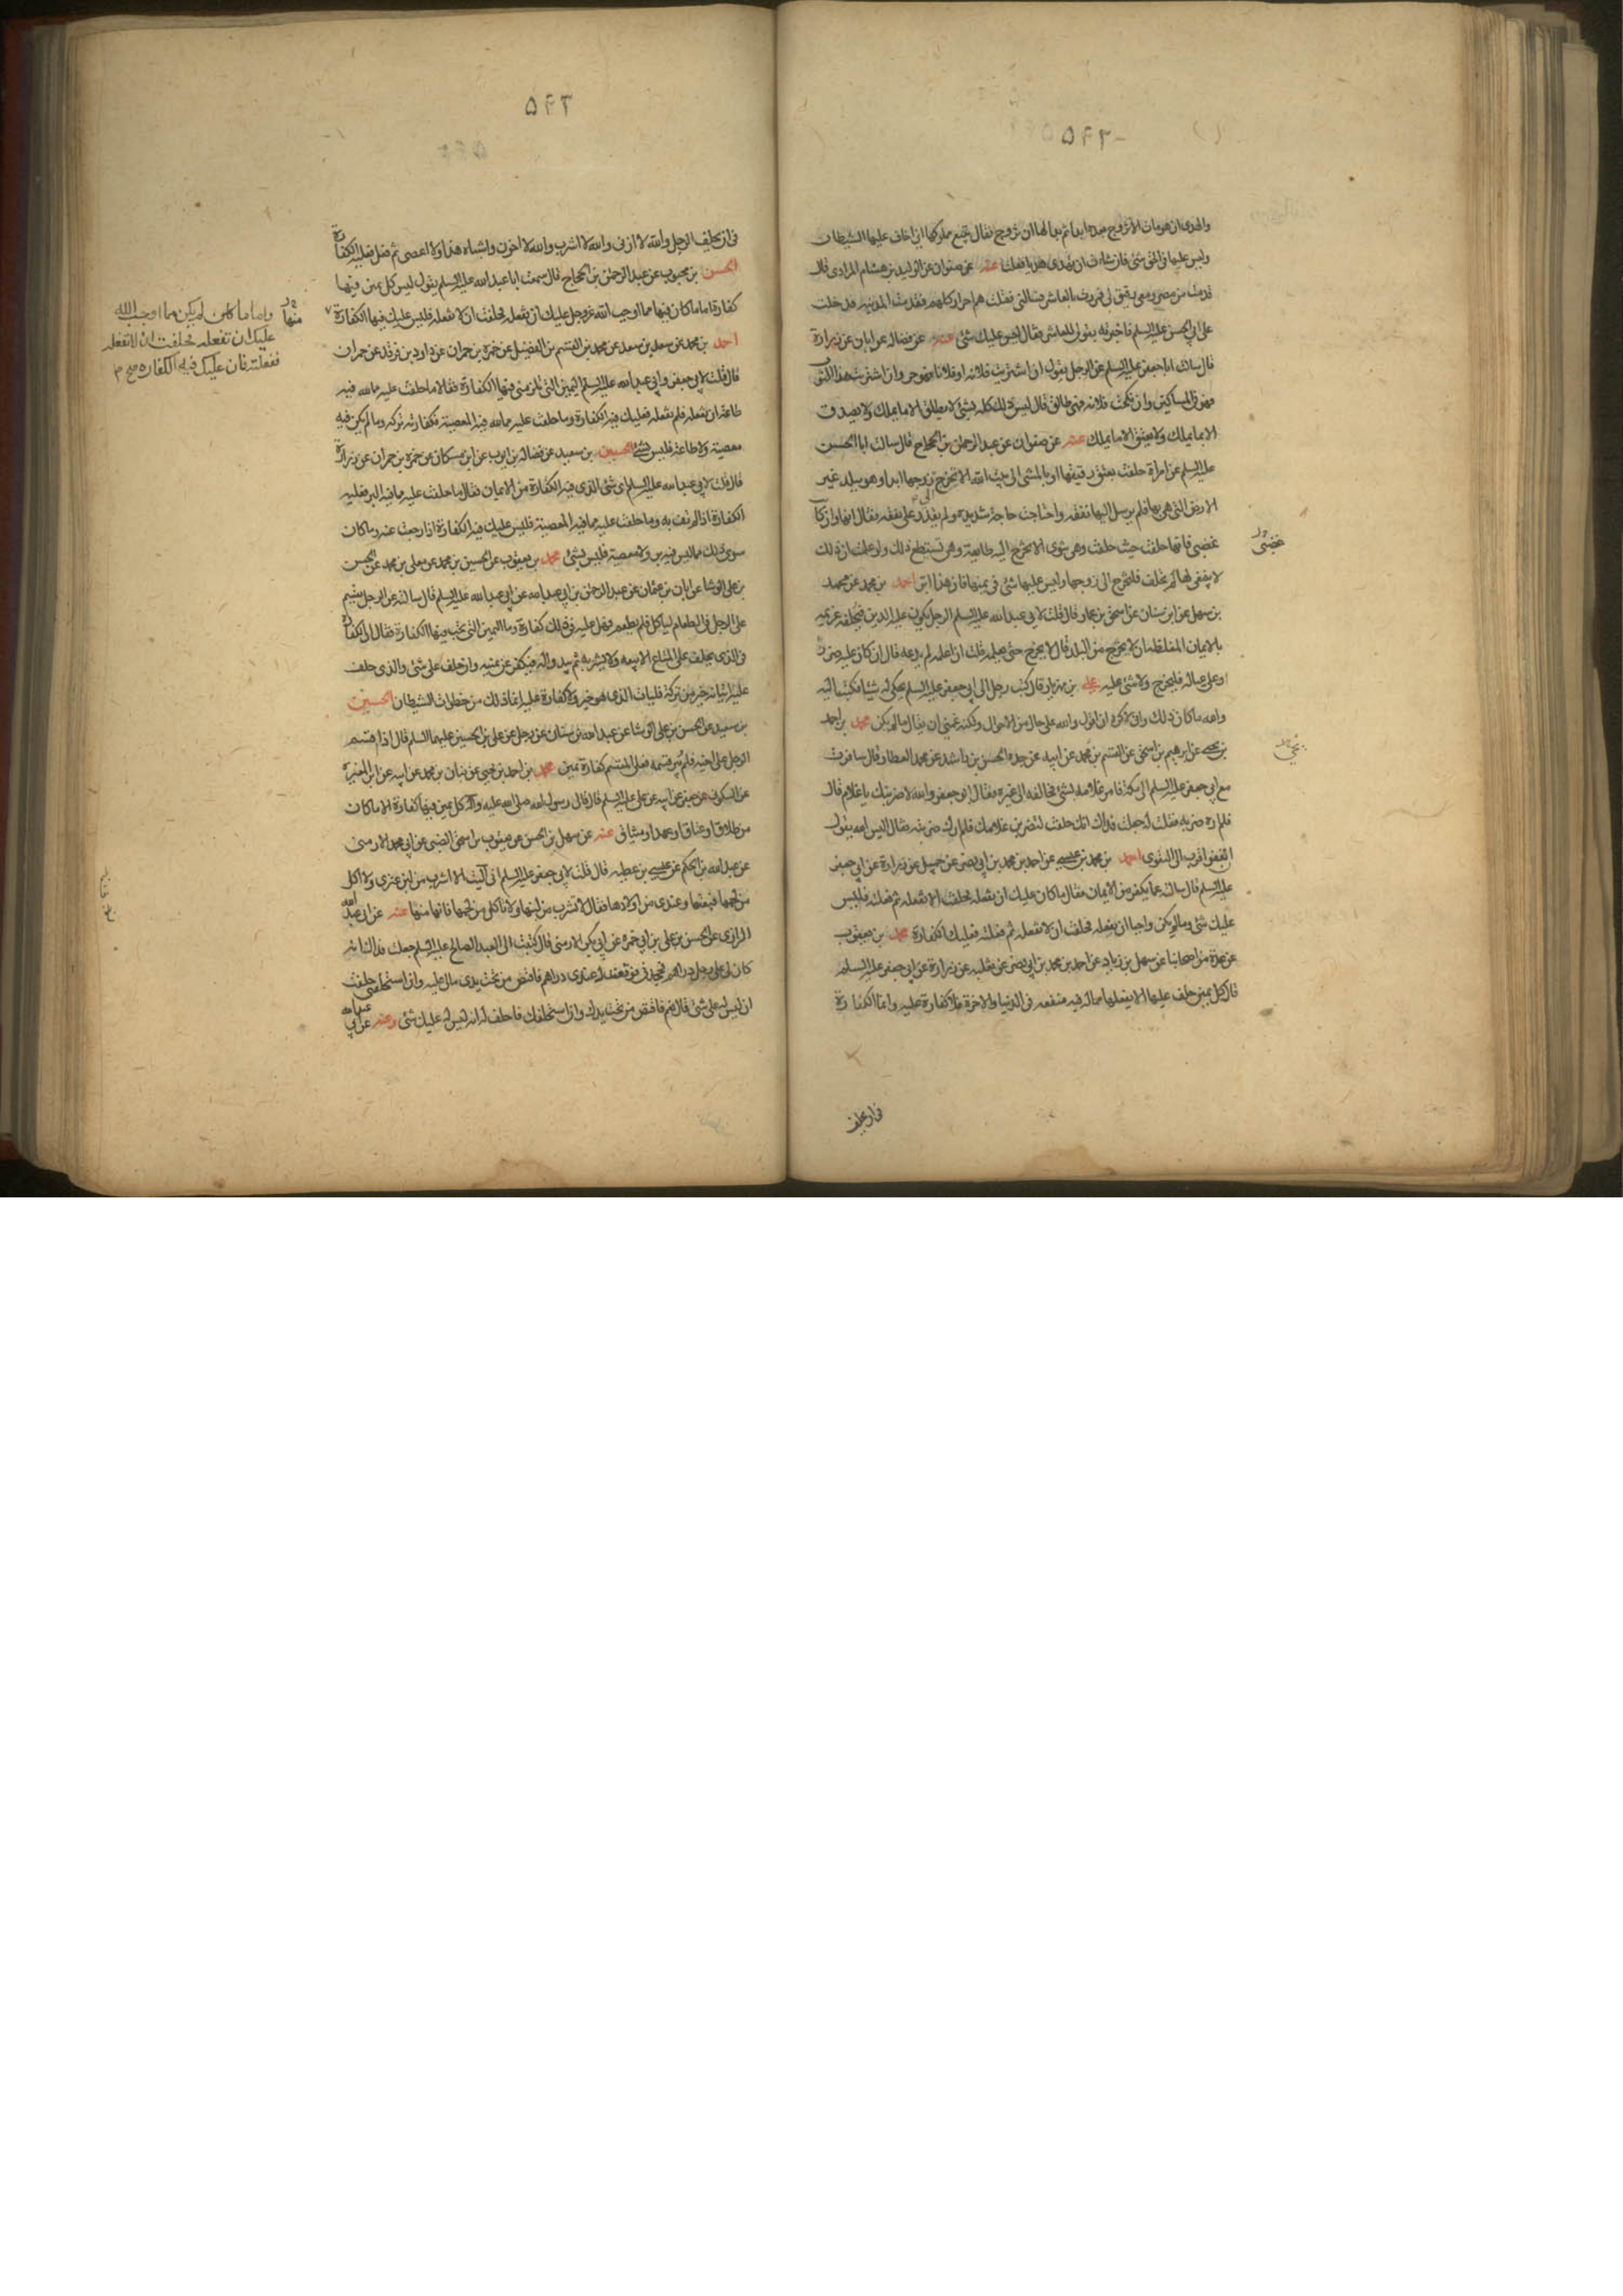 والهدی ان هو مات الا تزوج بعده ابدا ثم بدا لها ان تزوج فقال تبیع مملوکها انی اخاف علیها الشیطان
ولیس علیها فی الحق شئ فان شاءت ان تهدی هدیا فعلت عنه عن صفوان عن الولید بن هشام المرادی قال
قدمت من مصر ومعی رقیق لی فمررت بالعاشر فسالنی فقلت هم احرار کلهم فقدمت المدینه فدخلت
علی ابی الحسن علیه السلم فاخبرته بقولی للعاشر فقال لیس علیک شئ عنه عن فضاله عن ابان عن زرارة
قال سالت ابا جعفر علیه السلم عن الرجل یقول ان اشتریت فلانه او فلانا فهو حر وان اشتریت هذا الثوب
فهو فی المساکین وان نکحت فلانه فهی طالق قال لیس ذلک کله بشئ لا یطلق الا ما یملک ولا یصدق
الا بما یملک ولا یعتق الا ما یملک عنه عن صفوان عن عبد الرحمن بن الحجاج قال سالت ابا الحسن
علیه السلم عن امراة حلفت بعتق رقیقها او بالمشی الی بیت الله الا تخرج الی زوجها ابدا وهو ببلد غیر
الارض التی هی بها فلم یرسل الیها نفقه واحتاجت حاجة شدیده ولم یقدر علی نفقه فقال انها وان کانت
غضبی فانها حلفت حیث حلفت وهی تنوی الا تخرج الیه طایعة وهی تستطیع ذلک ولو علمت ان ذلک
لا ینبغی لها لم تحلف فلتخرج الی زوجها ولیس علیها شئ فی یمینها فان هذا ابر احمد بن محمد عن محمد
بن سهل عن ابن سنان عن اسحق بن عمار قال قلت لابی عبد الله علیه السلم الرجل یکون علیه الدین فیحلفه غریمه
بالایمان المغلظه ان لا یخرج من البلد قال لا یخرج حتی یعلمه قلت ان اعلمه لم یدعه قال ان کان علیه ضرر
او علی عیاله فلیخرج ولا شئ علیه علی بن مهزیار قال کتب رجل الی ابی جعفر علیه السلم یحکی له شیئا فکتب الیه
والله ما کان ذلک وانی لاکره ان اقول والله علی حال من الاحوال ولکنه غمنی ان یقال ما لم یکن محمد بن احمد
بن یحیی عن ابرهیم بن اسحق عن القسم بن محمد عن ابیه عن جده الحسن بن راشد عن محمد العطار قال سافرت
مع ابی جعفر علیه السلم الی مکة فامر غلامه بشئ فخالفه الی غیره فقال ابو جعفر والله لاضربنک یا غلام قال
فلم اره ضربه فقلت له جعلت فداک انک حلفت لتضربن غلامک فلم ارک ضربته فقال الیس الله یقول
ان تعفوا اقرب الی التقوی احمد بن محمد بن عیسی عن احمد بن محمد بن ابی نصر عن جمیل عن زرارة عن ابی جعفر
علیه السلم قال سالته عما یکفر من الایمان فقال ما کان علیک ان تفعله فحلفت الا تفعله ثم فعلته فلیس
علیک شئ وما لم یکن واجبا ان تفعله فحلفت ان لا تفعله ثم فعلته فعلیک الکفارة محمد بن یعقوب
عن عدة من اصحابنا عن سهل بن زیاد عن احمد بن محمد بن ابی نصر عن ثعلبه عن زرارة عن ابی جعفر علیه السلم
قال کل یمین حلف علیها الا یفعلها مما له فیه منفعه فی الدنیا والاخرة فلا کفارة علیه وانما الکفارة
فی ان یحلف
فی ان یحلف الرجل والله لا ازنی والله لا اشرب والله لا اخون واشباه هذا ولا اعصی ثم فعل فعلیه الکفارة
الحسن بن محبوب عن عبد الرحمن بن الحجاج قال سمعت ابا عبد الله علیه السلم یقول لیس کل یمین فیها
کفارة اما ما کان فیها مما اوجب الله عز وجل علیک ان تفعله فحلفت ان لا تفعله فلیس علیک فیها الکفارة
منها
واما ما کان لم یکن مما اوجب الله
علیک ان تفعله فحلفت ان لا تفعله
ففعلته فان علیک فیه الکفاره صح م
احمد بن محمد عن سعد بن سعد عن محمد بن القسم بن الفضیل عن حمزه بن حمران عن داود بن فرقد عن حمران
قال قلت لابی جعفر وابی عبد الله علیه السلم الیمین التی تلزمنی فیها الکفارة فقالا ما حلفت علیه مما لله فیه
طاعة ان تفعله فلم تفعله فعلیک فیه الکفارة وما حلفت علیه مما لله فیه المعصیة فکفارته ترکه وما لم یکن فیه
معصیة ولا طاعة فلیس بشئ الحسین بن سعید عن فضاله بن ایوب عن ابن مسکان عن حمزه بن حمران عن زرارة
قال قلت لابی عبد الله علیه السلم ای شئ الذی فیه الکفارة من الایمان فقال ما حلفت علیه مما فیه البر فعلیه
الکفارة اذا لم تف به وما حلفت علیه مما فیه المعصیة فلیس علیک فیه الکفارة اذا رجعت عنه وما کان
سوی ذلک مما لیس فیه بر ولا معصیة فلیس بشئ محمد بن یعقوب عن الحسین بن محمد عن معلی بن محمد عن الحسن
بن علی الوشا عن ابان بن عثمان عن عبد الرحمن بن ابی عبد الله عن ابی عبد الله علیه السلم قال سالته عن الرجل یقسم
علی الرجل فی الطعام لیاکل فلم یطعم فهل علیه فی ذلک کفارة وما الیمین التی تجب فیها الکفارة فقال الکفارة
فی الذی یحلف علی المتاع الا یبیعه ولا یشتریه ثم یبدو له فیکفر عن یمینه وان حلف علی شئ والذی حلف
علیه اتیانه خیر من ترکه فلیات الذی هو خیر ولا کفارة علیه انما ذلک من خطوات الشیطان الحسین
بن سعید عن الحسن بن علی الوشا عن عبد الله بن سنان عن رجل عن علی بن الحسین علیهما السلم قال اذا قسم
الرجل علی اخیه فلم یبر قسمه فعلی المقسم کفارة یمین محمد بن احمد بن یحیی عن بنان بن محمد عن ابیه عن ابن المغیرة
عن السکونی عن جعفر عن ابیه عن علی علیه السلم قال قال رسول الله صلی الله علیه وآله کل یمین فیها کفارة الا ما کان
من طلاق او عتاق او عهد او میثاق عنه عن سهل بن الحسن عن یعقوب بن اسحق الضبی عن ابی محمد الارمنی
عن عبد الله بن الحکم عن عیسی بن عطیه قال قلت لابی جعفر علیه السلم انی آلیت الا اشرب من لبن عنزی ولا آکل
من لحمها فبعتها وعندی من اولادها فقال لا تشرب من لبنها ولا تاکل من لحمها فانها منها عنه عن ابی عبد الله
الرازی عن الحسن بن علی بن ابی حمزه عن ابی بکر الارمنی قال کتبت الی العبد الصالح علیه السلم جعلت فداک انه
کان لی علی رجل دراهم فجحدنی فوقعت له عندی دراهم فاقتص من تحت یدی مالی علیه وان استحلفنی حلفت
ان لیس له علی شئ قال نعم فاقتص من تحت یدک وان استحلفک فاحلف له انه لیس له علیک شئ وعنه عن ابی عبد الله